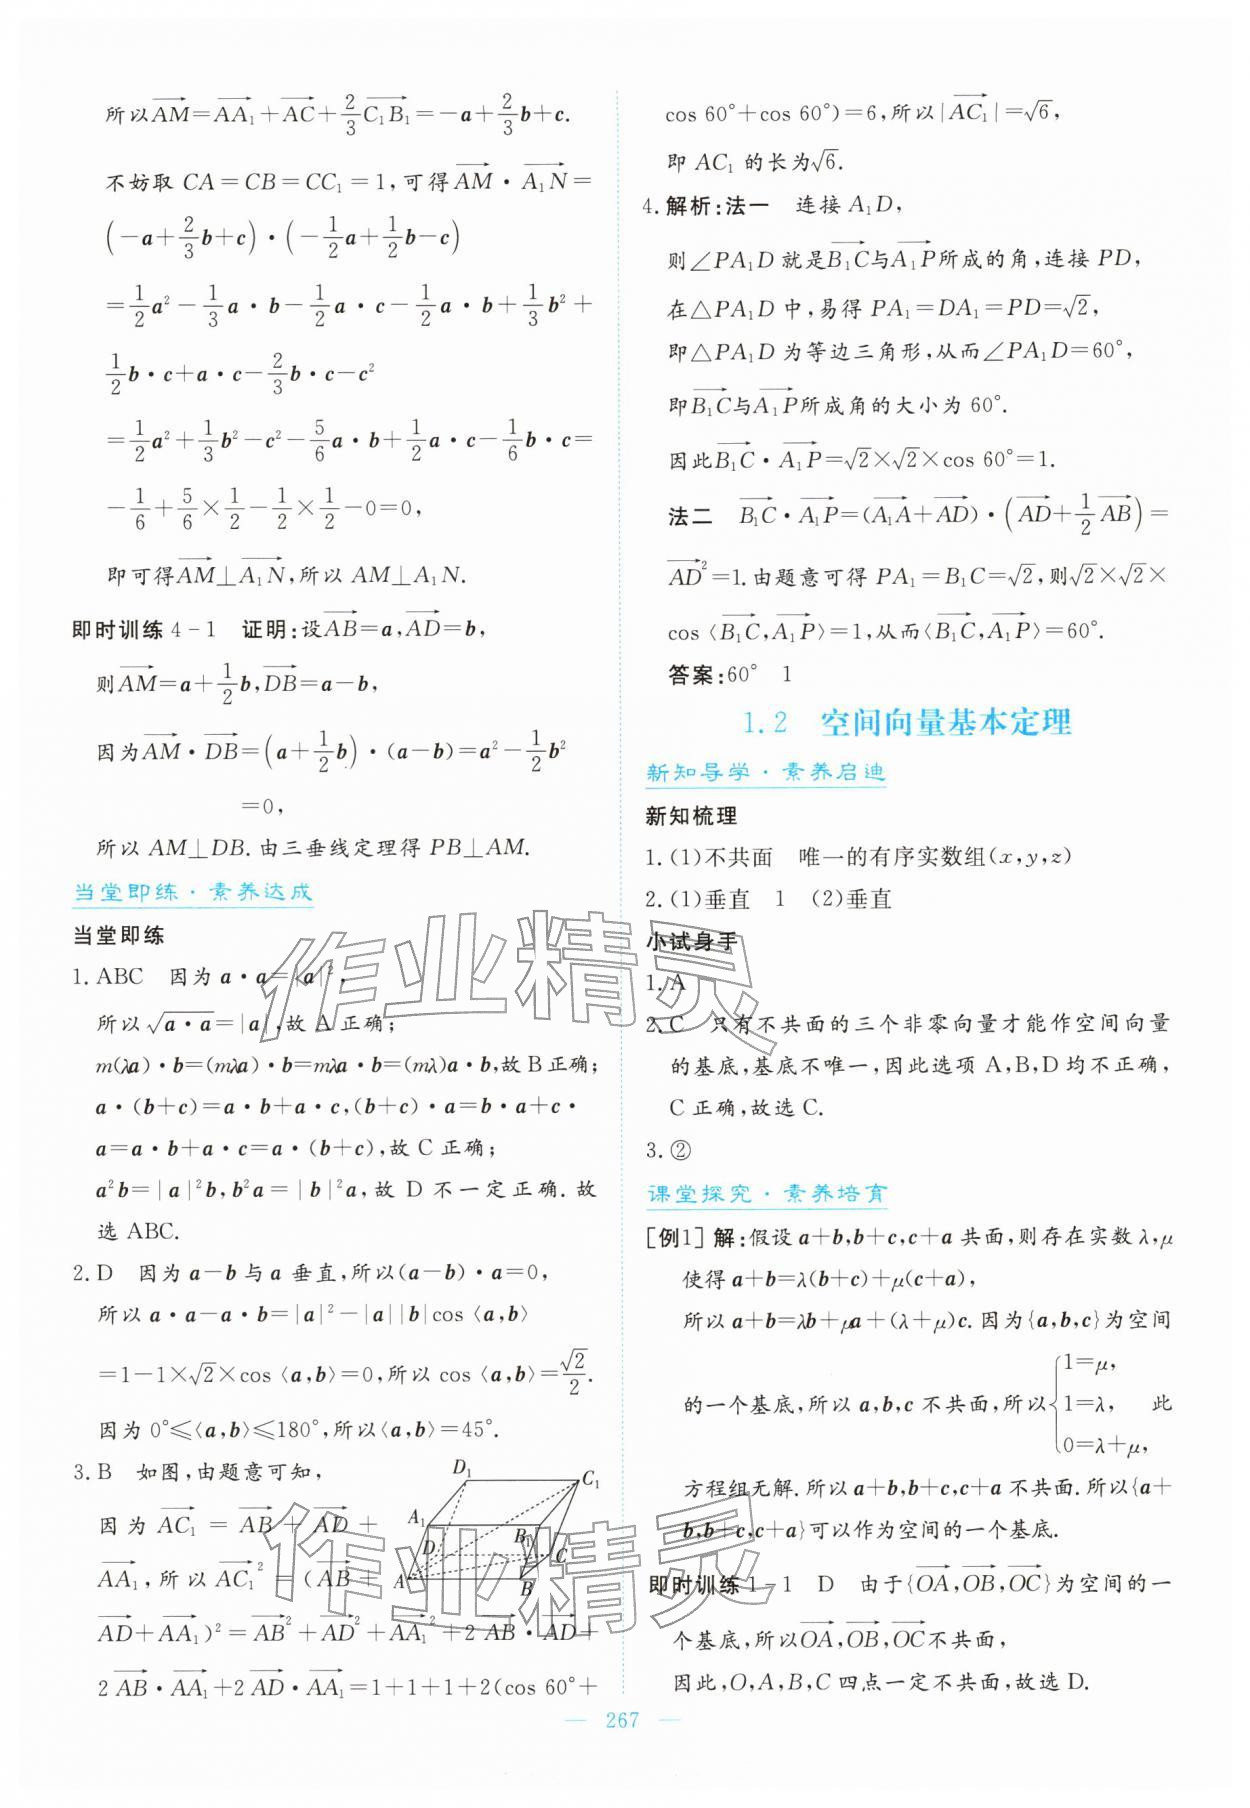 所以AM=AA₁+AC+2/3C₁B₁=-a+2/3b+c.
不妨取 CA=CB=CC₁=1,可得AM·A₁N=
(-a+2/3b+c)·(-1/2a+1/2b-c)
=1/2a²-1/3a·b-1/2a·c-1/2a·b+1/3b²+
1/2b·c+a·c-2/3b·c-c²
=1/2a²+1/3b²-c²-5/6a·b+1/2a·c-1/6b·c=
-1/6+5/6×1/2-1/2×1/2-0=0,
即可得AM⊥A₁N,所以 AM⊥A₁N.
即时训练4-1 证明:设AB=a,AD=b,
则AM=a+1/2b,DB=a-b,
因为AM·DB=(a+1/2b)·(a-b)=a²-1/2b²
=0,
所以 AM⊥DB.由三垂线定理得 PB⊥AM.
当堂即练·素养达成
当堂即练
1.ABC 因为 a·a=|a|²,
所以√a·a=|a|,故 A 正确;
m(λa)·b=(mλa)·b=mλa·b=(mλ)a·b,故 B 正确;
a·(b+c)=a·b+a·c,(b+c)·a=b·a+c·
a=a·b+a·c=a·(b+c),故 C 正确;
a²b=|a|²b,b²a=|b|²a,故 D 不一定正确.故
选 ABC.
2.D 因为 a-b 与 a 垂直,所以(a-b)·a=0,
所以 a·a-a·b=|a|²-|a||b|cos〈a,b〉
=1-1×√2×cos〈a,b〉=0,所以 cos〈a,b〉=√2/2.
因为 0°≤〈a,b〉≤180°,所以〈a,b〉=45°.
3.B 如图,由题意可知,
因为 AC₁ = AB + AD +
AA₁,所以 AC₁² = (AB +
AD+AA₁)²=AB²+AD²+AA₁²+2AB·AD+
2AB·AA₁+2AD·AA₁=1+1+1+2(cos 60°+
D₁
C₁
A₁
B₁
D
C
A
B
cos 60°+cos 60°)=6,所以|AC₁|=√6,
即 AC₁ 的长为√6.
4.解析:法一 连接 A₁D,
则∠PA₁D 就是B₁C与A₁P所成的角,连接 PD,
在△PA₁D 中,易得 PA₁=DA₁=PD=√2,
即△PA₁D 为等边三角形,从而∠PA₁D=60°,
即B₁C与A₁P所成角的大小为 60°.
因此B₁C·A₁P=√2×√2×cos 60°=1.
法二 B₁C·A₁P=(A₁A+AD)·(AD+1/2AB)=
AD²=1.由题意可得 PA₁=B₁C=√2,则√2×√2×
cos〈B₁C,A₁P〉=1,从而〈B₁C,A₁P〉=60°.
答案:60° 1
1.2 空间向量基本定理
新知导学·素养启迪
新知梳理
1.(1)不共面 唯一的有序实数组(x,y,z)
2.(1)垂直 1 (2)垂直
小试身手
1.A
2.C 只有不共面的三个非零向量才能作空间向量
的基底,基底不唯一,因此选项 A,B,D 均不正确,
C 正确,故选 C.
3.②
课堂探究·素养培育
[例1] 解:假设 a+b,b+c,c+a 共面,则存在实数 λ,μ
使得 a+b=λ(b+c)+μ(c+a),
所以 a+b=λb+μa+(λ+μ)c.因为{a,b,c}为空间
的一个基底,所以 a,b,c 不共面.所以{1=μ, 1=λ, 0=λ+μ, 此
方程组无解.所以 a+b,b+c,c+a 不共面.所以{a+
b,b+c,c+a}可以作为空间的一个基底.
即时训练1-1 D 由于{OA,OB,OC}为空间的一
个基底,所以OA,OB,OC不共面,
因此,O,A,B,C 四点一定不共面,故选 D.
— 267 —
作业精灵
作业精灵